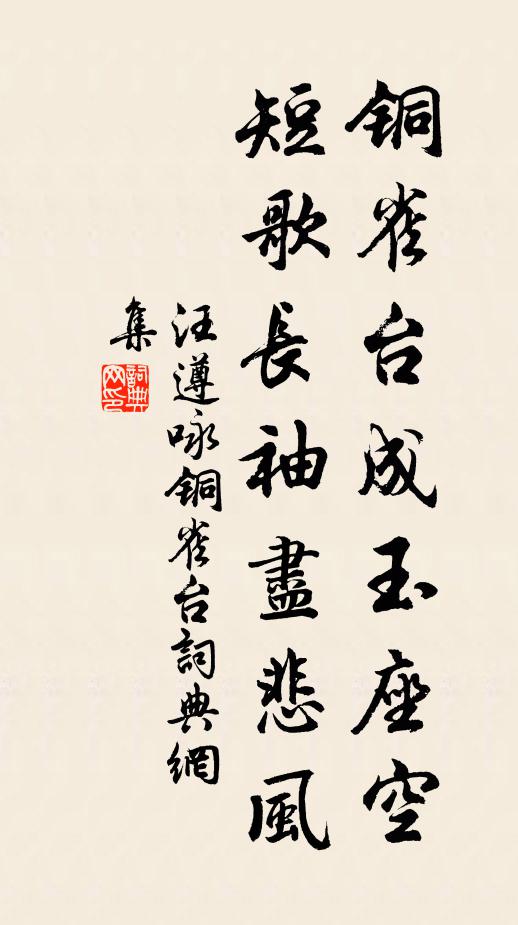 銅雀台成玉座空
短歌長袖盡悲風
汪遵咏銅雀台詞典網
集
詞典
网印